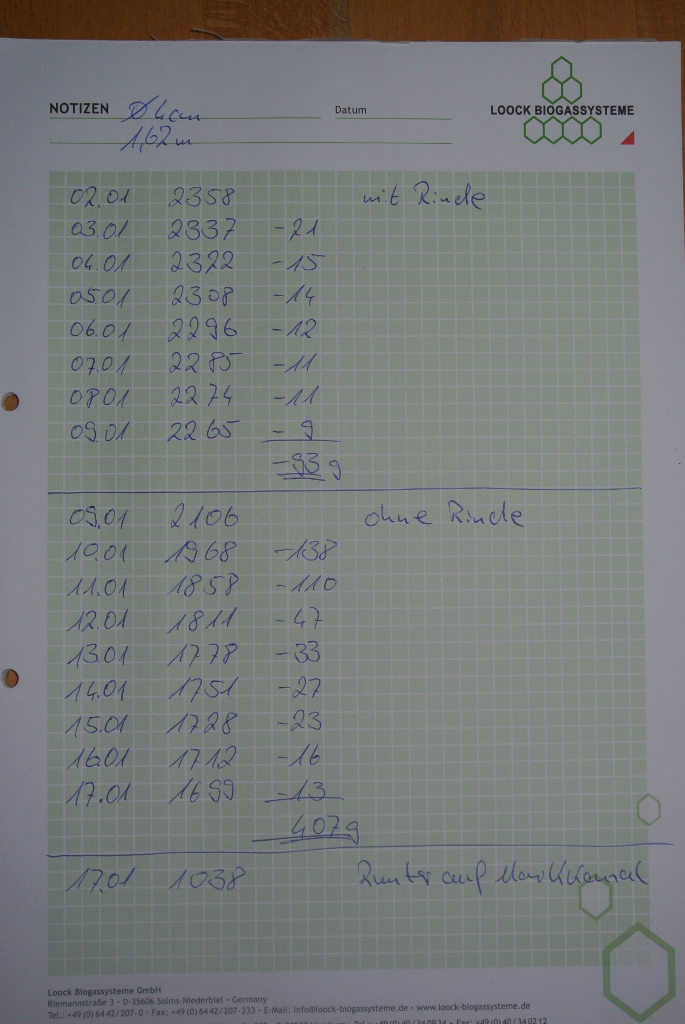 NOTIZEN Datum
LOOCK BIOGASSYSTEME
1,62m
02.01 2358 mit Rinde
03.01 2337 -21
04.01 2322 -15
05.01 2308 -14
06.01 2296 -12
07.01 2285 -11
08.01 2274 -11
09.01 2265 - 9
-93 g
09.01 2106 ohne Rinde
10.01 1968 -138
11.01 1858 -110
12.01 1811 -47
13.01 1778 -33
14.01 1751 -27
15.01 1728 -23
16.01 1712 -16
17.01 1699 -13
407g
17.01 1038 Runter auf Markkanal
Loock Biogassysteme GmbH
Riemannstraße 3 · D-35606 Solms-Niederbiel · Germany
Tel.: +49 (0) 64 42 / 207-0 · Fax: +49 (0) 64 42 / 207-233 · E-Mail: info@loock-biogassysteme.de · www.loock-biogassysteme.de